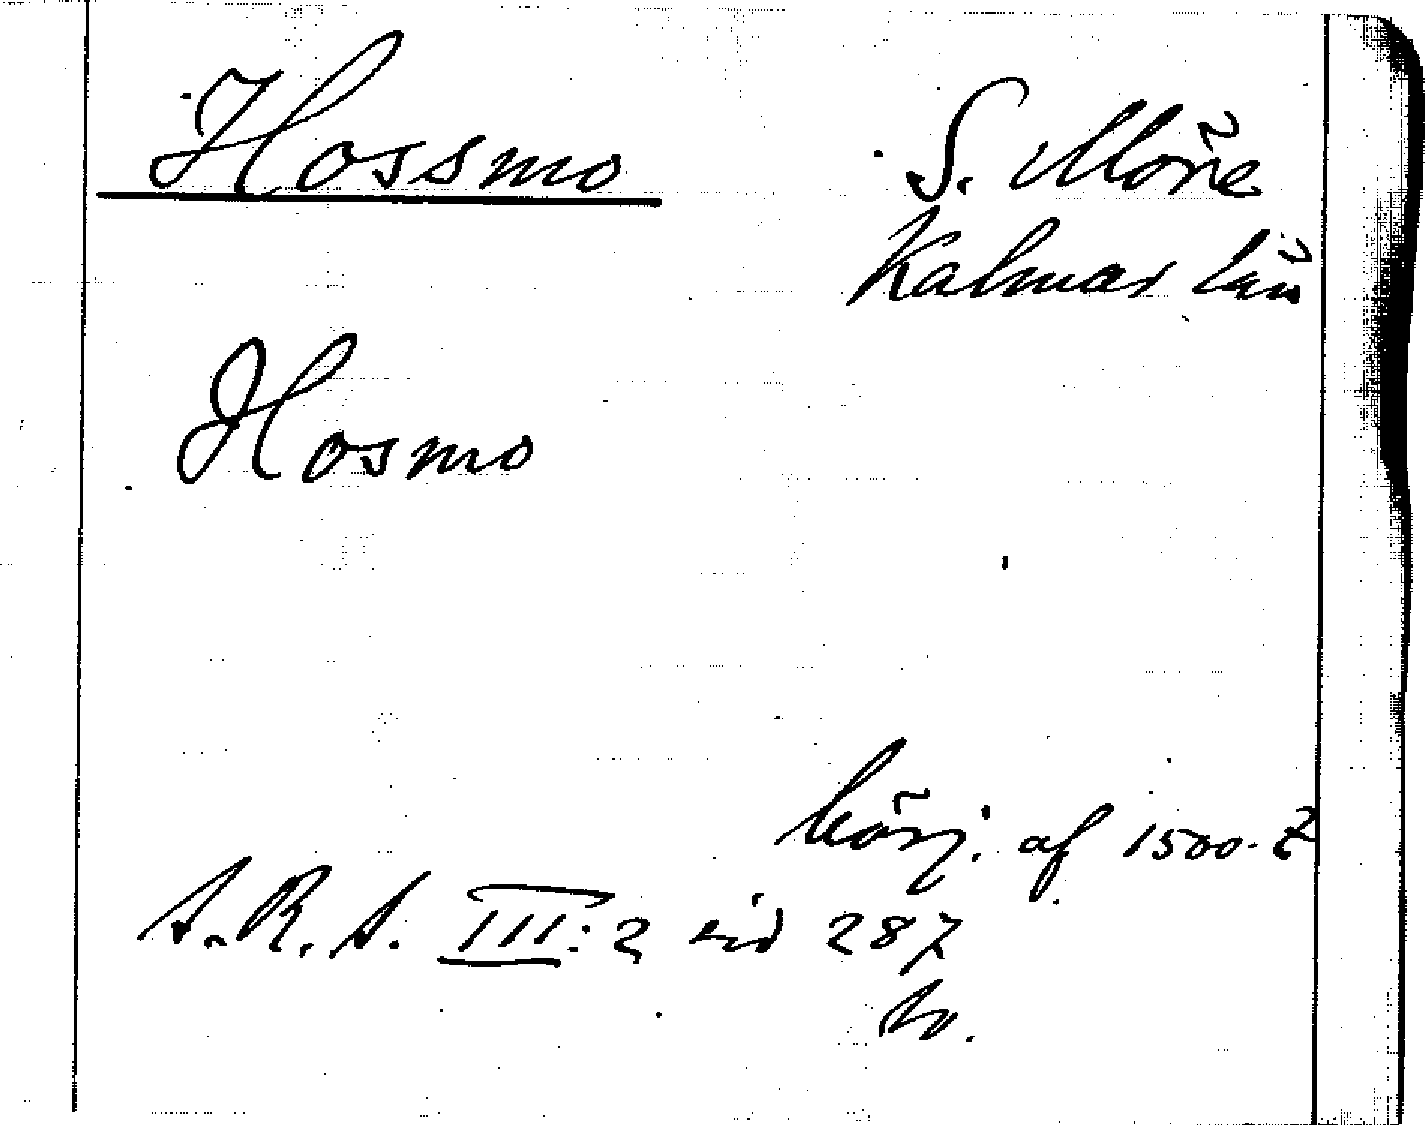 Hossmo
S. Möre
Kalmar län
Hosmo
börj. af 1500-t
S.R.A. III:2 sid 287